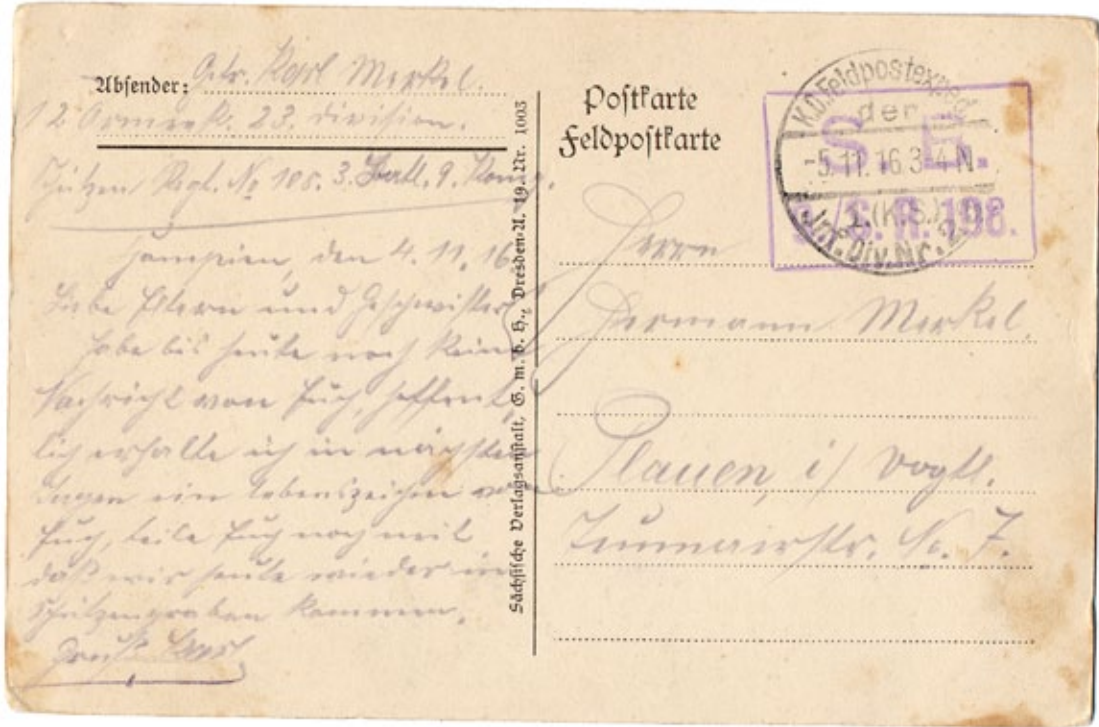 Absender: Gefr. Karl Merkel.
12 Armeek. 23. Division.
Schützen Regl. No 108. 3. Batl. 9. Komp.
den 4. 11. 16
Liebe Eltern und Geschwister!
Habe bis heute noch keine
Nachricht von Euch, hoffent
lich erhalte ich in nächsten
Tagen ein Lebenszeichen von
Euch, teile Euch noch mit
daß wir heute wieder in
Schützengraben kommen.
Gruß Karl
Sächsische Verlagsanstalt, G. m. b. H., Dresden-A. 19. Nr. 1003
Postkarte
Feldpostkarte
K.D. Feldpostexped.
der
-5.11.16. 3-4 N.
1.(K.S.)
Inf. Div. Nr. 23
S. B.
S. R. 108.
Herrn
Hermann Merkel.
Plauen, i/ Vogtl.
No. 7.